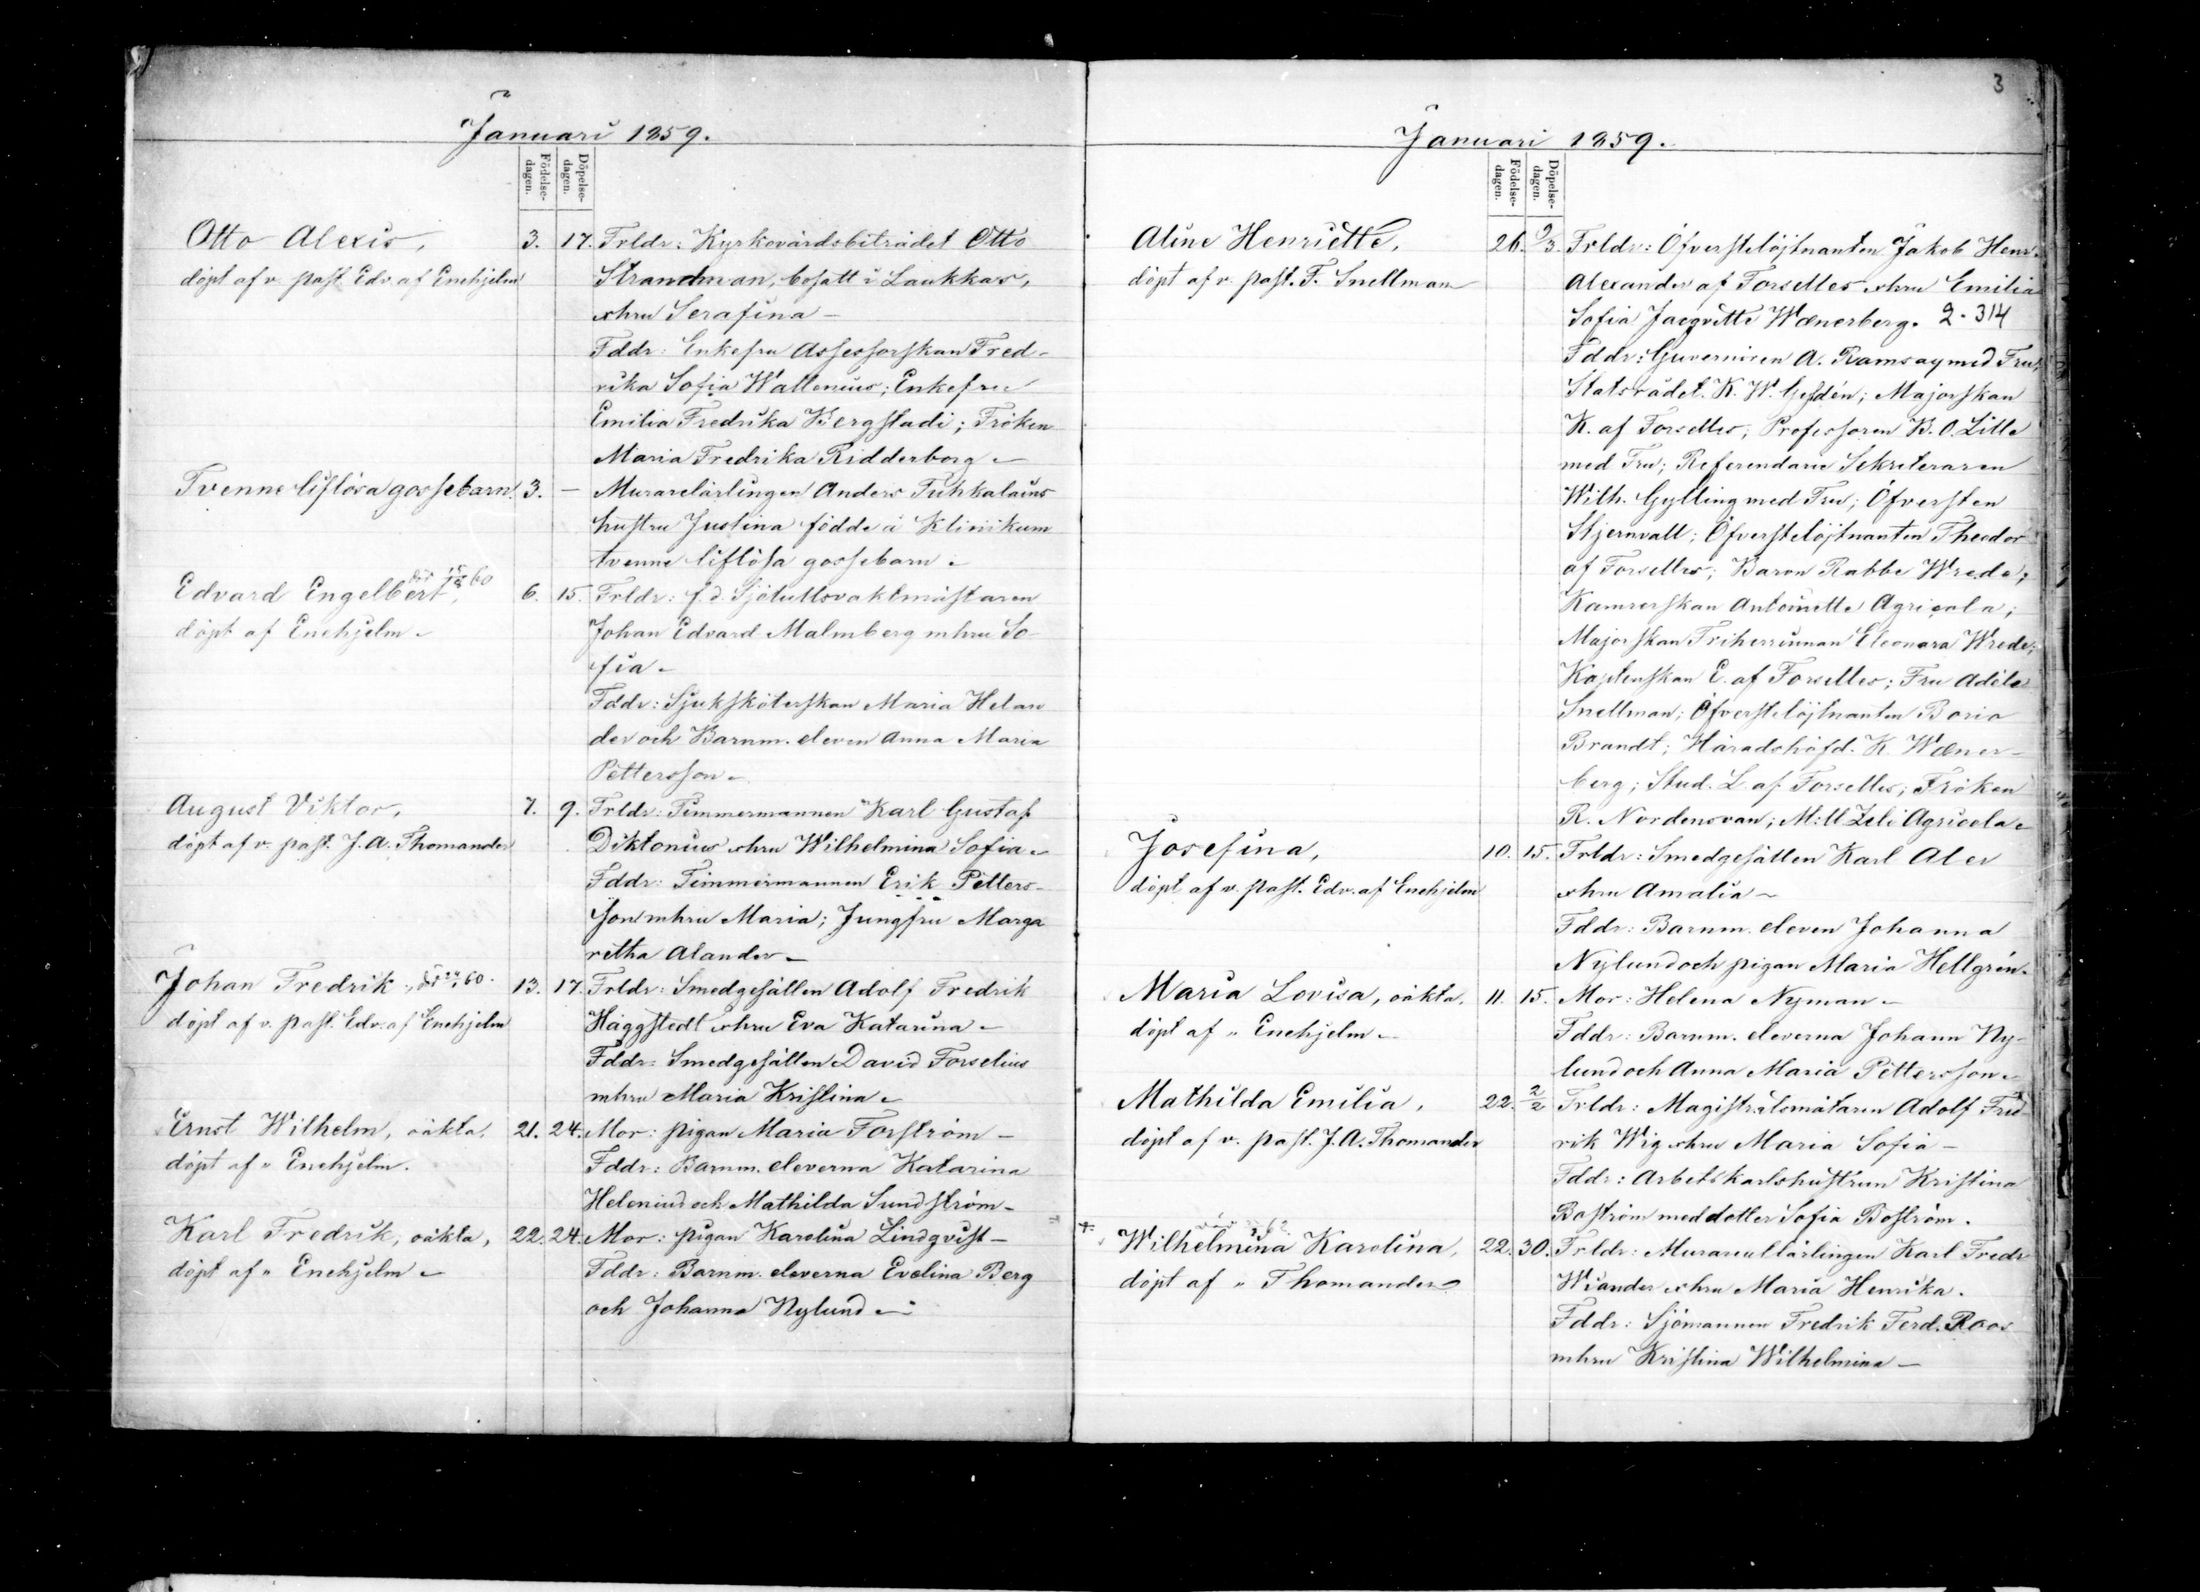 Januari 1859.
Födelse-dagen.
Döpelse-dagen.
Otto Alexis,
döpt af v. past. Edv. af Enehjelm
3. 17.
Frldr: Kyrkovärdsbiträdet Otto
Strandman, bosatt i Laukkas,
o hru Serafina –
Fddr: Enkefru Assessorskan Fred-
rika Sofia Wallenius; Enkefru
Emilia Fredrika Bergstadi; Fröken
Maria Fredrika Ridderborg –
Tvenne liflösa gossebarn.
3. –
Murarelärlingen Anders Tuhkalains
hustru Justina födde å Klinikum
tvenne liflösa gossebarn –
Edvard Engelbert,
döpt af Enehjelm –
6. 15.
Frldr: f. d. Sjötullsvaktmästaren
Johan Edvard Malmberg mhru So-
fia –
Fddr: Sjuksköterskan Maria Helan
der och Barnm. eleven Anna Maria
Pettersson –
August Viktor,
döpt af v. past. J. A. Thomander
7. 9.
Frldr: Timmermannen Karl Gustaf
Diktonius o hru Wilhelmina Sofia –
Fddr: Timmermannen Erik Petters-
son mhru Maria; Jungfru Marga
retha Alander –
Johan Fredrik
döpt af v. past. Edv. af Enehjelm
13. 17.
Frldr: Smedgesällen Adolf Fredrik
Häggstedt o hru Eva Katarina –
Fddr: Smedgesällen David Forselius
mhru Maria Kristina –
Ernst Wilhelm, oäkta,
döpt af " Enehjelm.
21. 24.
Mor: pigan Maria Forström –
Fddr: Barnm. eleverna Katarina
Helenius och Mathilda Sundström –
Karl Fredrik, oäkta,
döpt af " Enehjelm –
22. 24.
Mor: pigan Karolina Lindqvist –
Fddr: Barnm. eleverna Evelina Berg
och Johanna Nylund –
3
Januari 1859.
Födelse-dagen.
Döpelse-dagen.
Aline Henriette,
döpt af v. past. F. Snellman
26. 9/3.
Frldr: Öfverstelöjtnanten Jakob Henr.
Alexander af Forselles o hru Emilia
Sofia Jaeqvette Wænerberg. 2.314
Fddr: Guvernören A. Ramsay med Fru;
Statsrådet K. W. ; Majorskan
K. af Forselles; Professoren B. O. Lille
med Fru; Referendarie Sekreteraren
Wilh. Gylling med Fru; Öfversten
Stjernvall; Öfverstelöjtnanten Theodor
af Forselles; Baron Rabbe Wrede;
Kamrerskan Antoinette Agricola;
Majorskan Friherrinnan Eleonora Wrede;
Kaptenskan E. af Forselles; Fru Adèle
Snellman; Öfverstelöjtnanten Boris
Brandt; Häradshöfd. K. Wæner-
berg; Stud. L. af Forselles; Fröken
R. Nordensvan; M:ll Zeli Agricola –
Josefina,
döpt af v. past. Edv. af Enehjelm
10. 15.
Frldr: Smedgesällen Karl Aler
o hru Amalia –
Fddr: Barnm. eleven Johanna
Nylund och pigan Maria Hellgrén.
Maria Lovisa, oäkta,
döpt af " Enehjelm –
11. 15.
Mor: Helena Nyman –
Fddr: Barnm. eleverna Johann Ny-
lund och Anna Maria Pettersson –
Mathilda Emilia,
döpt af v. past. J. A. Thomander
22. 2/2
Frldr: Magistratsmätaren Adolf Fred
rik Wig o hru Maria Sofia –
Fddr: Arbetskarlshustrun Kristina
Boström med dotter Sofia Boström.
Wilhelmina Karolina,
döpt af " Thomander
22. 30.
Frldr: Karl Fredr
Wiander o hru Maria Henrika.
Fddr: Sjömannen Fredrik Ferd. Roos
mhru Kristina Wilhelmina –